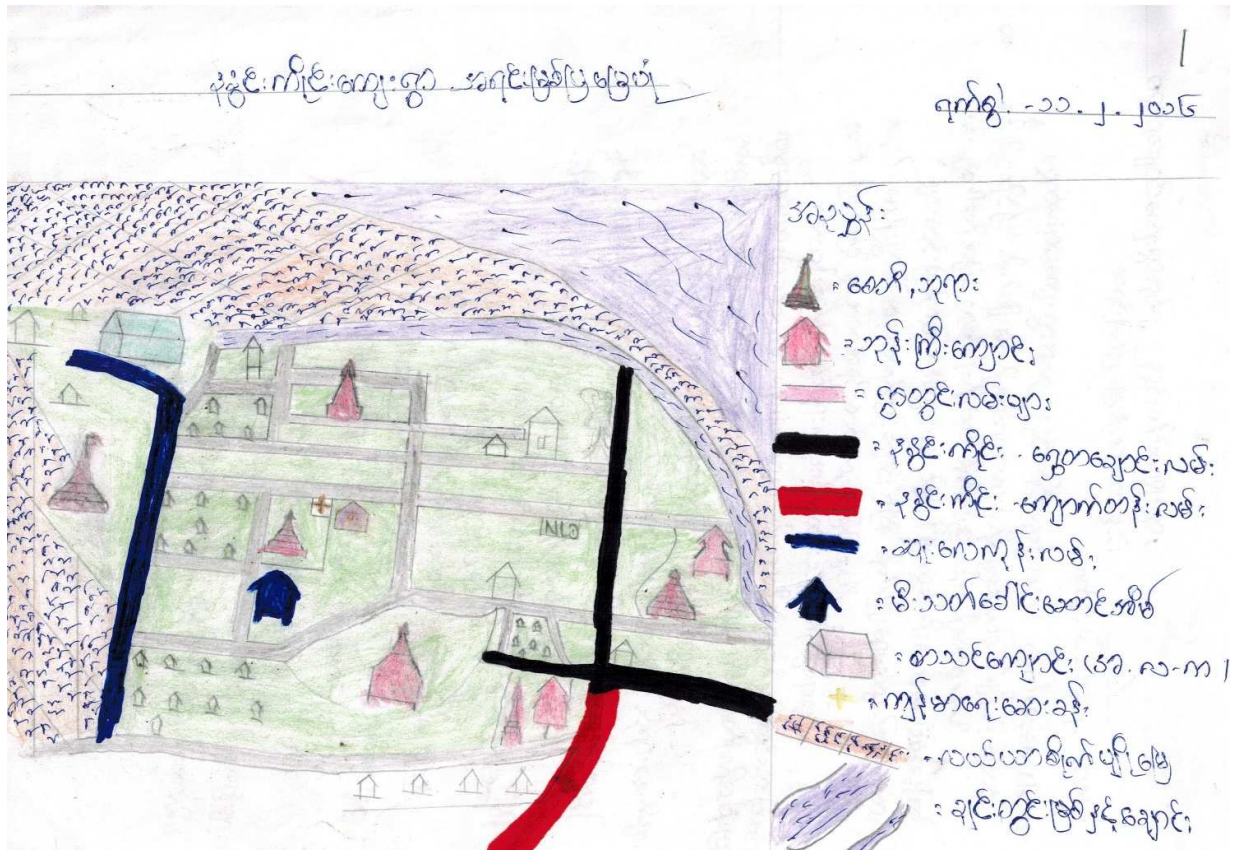 နန္ဒိုင်းကိုင်းကျေးရွာ အရင်းမြစ်ပြမြေပုံ
1
ရက်စွဲ - ၁၁.၂.၂၀၁၆
အညွှန်း
= စေတီ, ဘုရား
= ဘုန်းကြီးကျောင်း
= ရွာတွင်းလမ်းများ
ကိုင်း - ရွှေတချောင်းလမ်း
ကိုင်း - ကျောက်တန်းလမ်း
လမ်း
= မီးသတ်ခေါင်းဆောင်အိမ်
= စာသင်ကျောင်း (အ.လ-က)
= ကျန်းမာရေးဆေးခန်း
= လယ်ယာစိုက်ပျိုးမြေ
= ချင်းတွင်းမြစ်နှင့်ချောင်း